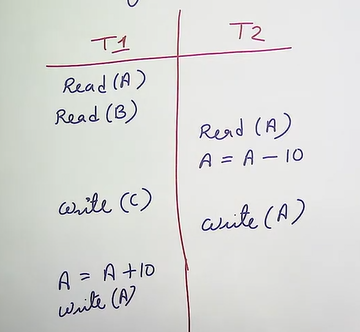 T1 T2
Read (A)
Read (B)
Read (A)
A = A - 10
write (C)
write (A)
A = A + 10
write (A)